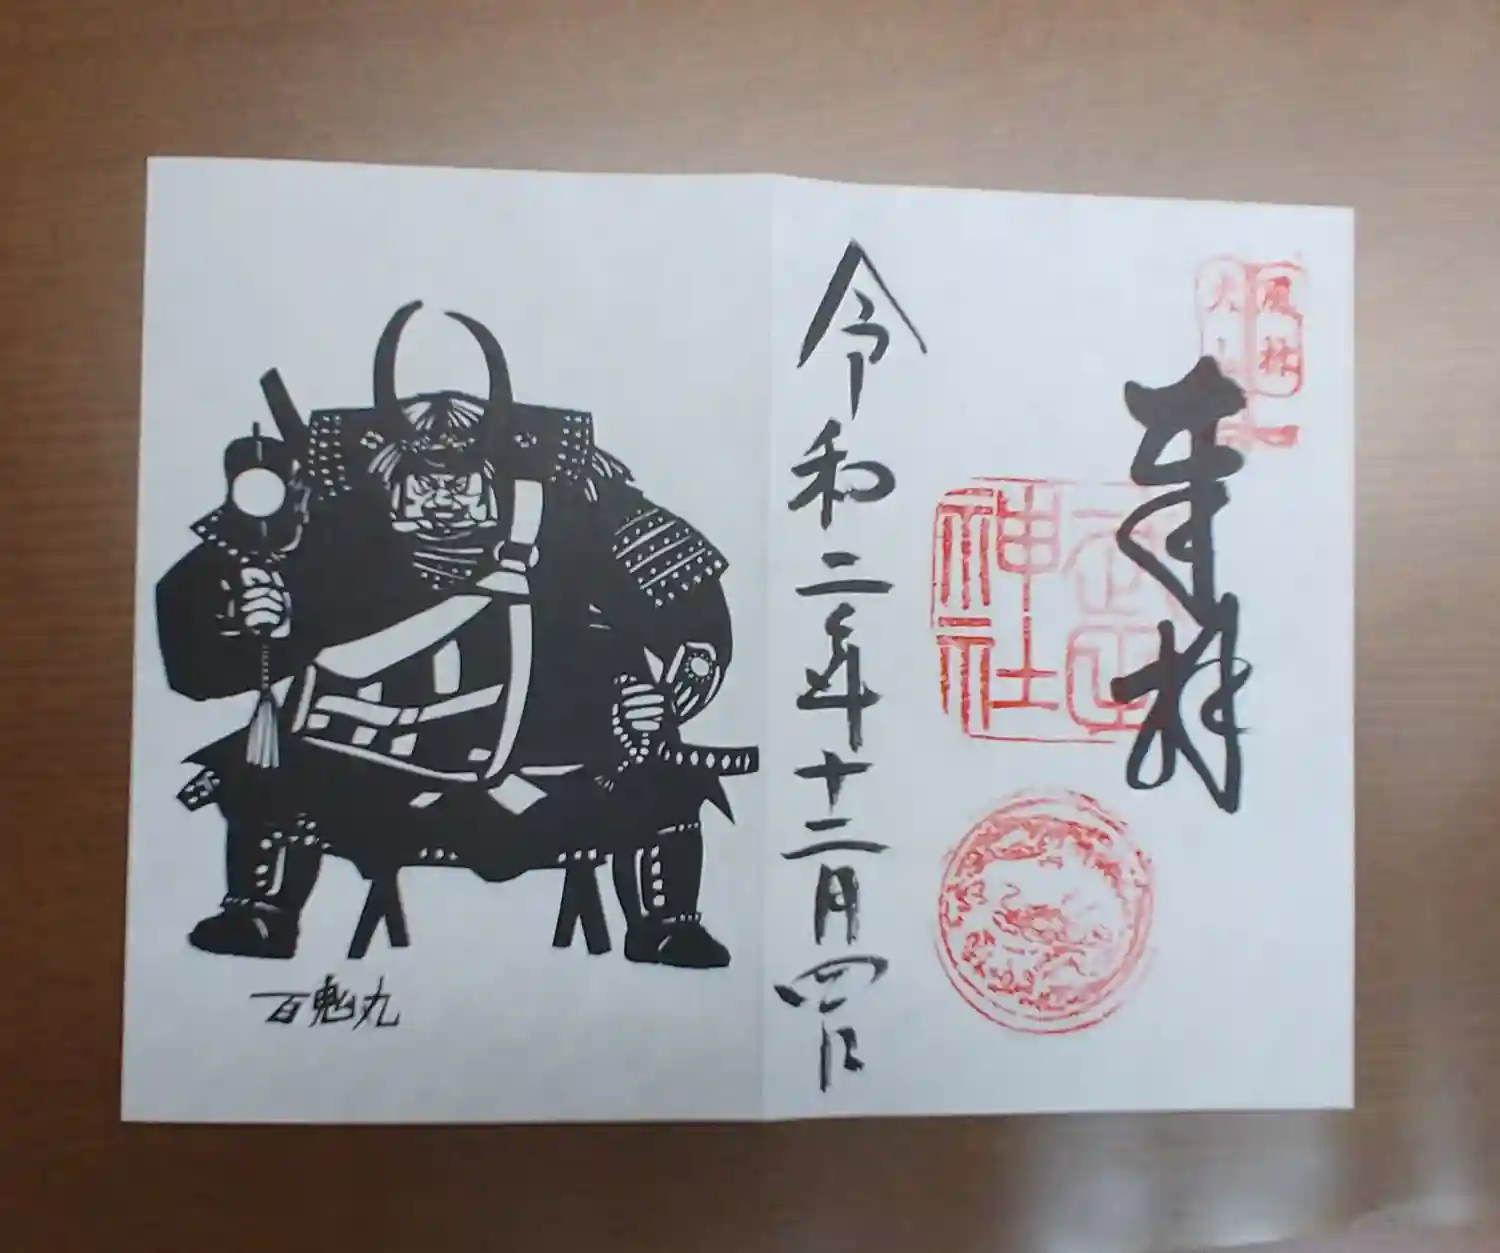 風林
火山
奉拝
神社
令和二年十二月四日
百鬼丸